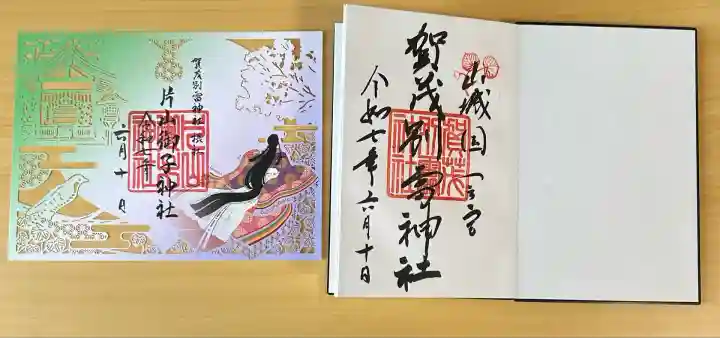 賀茂別雷神社摂社
片山御子神社
令和七年
六月十日
山城国一之宮
賀茂別雷神社
令和七年六月十日